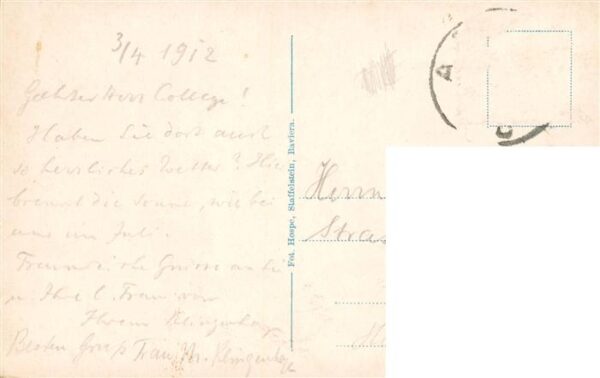 3/4 1912
Geehrter Herr College!
Haben Sie dort auch
so herrliches Wetter? Hier
brennt die Sonne, wie bei
uns im Juli.
Freundliche Grüsse an Sie
u. Ihre l. Frau von
Ihrem Klingenhage
Besten Gruß Frau Klingenhage
Fot. Hospe, Staffelstein, Baviera.
Herrn
Stras